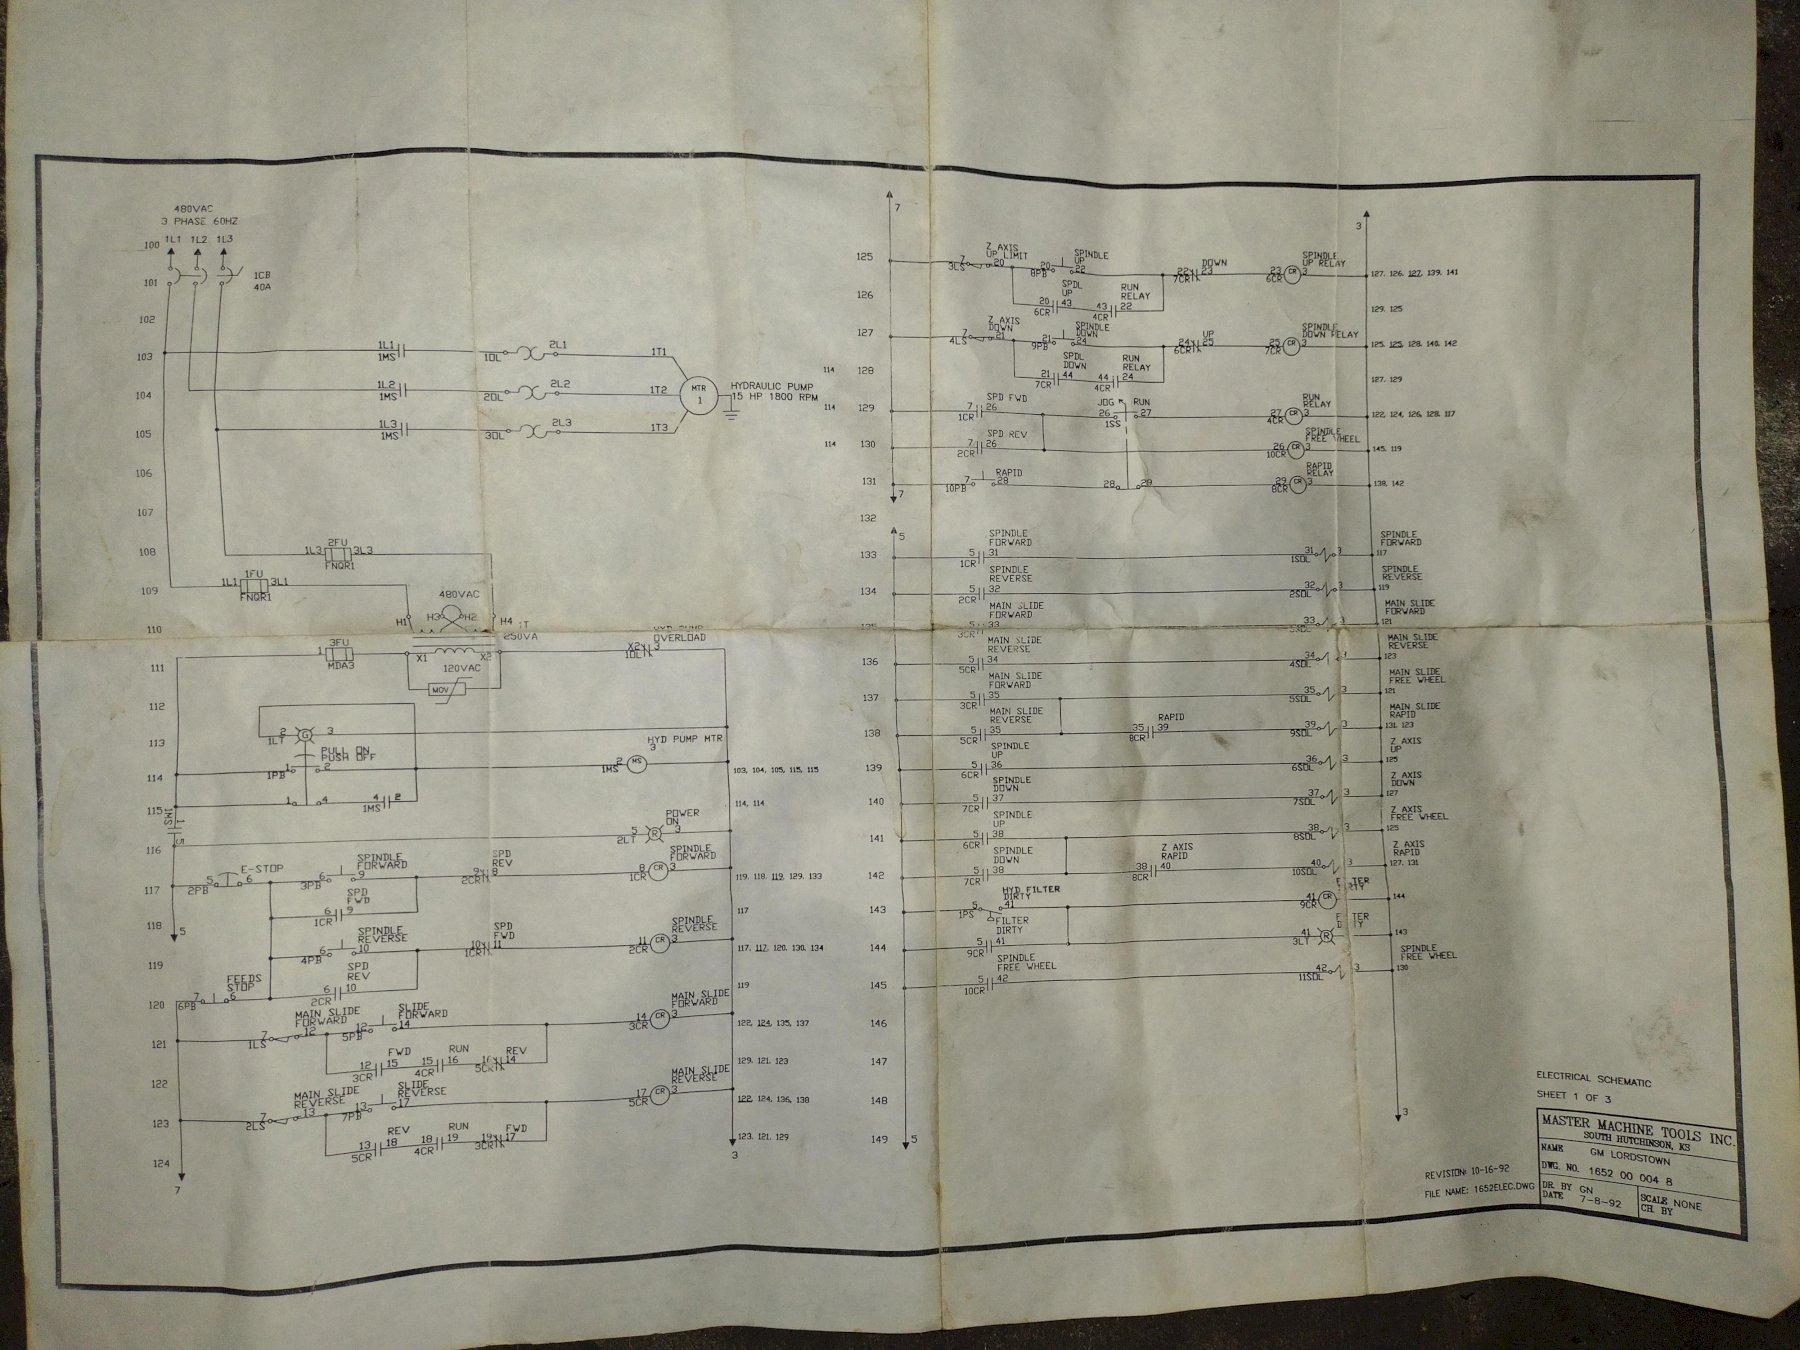 480VAC
3 PHASE 60HZ
100 1L1 1L2 1L3
101 1CB
40A
102
103 1L1 1MS 1OL 2L1 1T1
104 1L2 1MS 2OL 2L2 1T2 MTR 1 HYDRAULIC PUMP
15 HP 1800 RPM
105 1L3 1MS 3OL 2L3 1T3
106
107
108 1L3 2FU 3L3
FNQR1
109 1L1 1FU 3L1
FNQR1
480VAC
H1 H3 H2 H4
110 250VA
OVERLOAD
111 1 3FU X1 X2 X2 1OL 3
MDA3
120VAC
MOV
112
113 2 1LT G 3
PULL ON
PUSH OFF
HYD PUMP MTR
114 1PB 1 2 1MS 2 MS 3 103, 104, 105, 115, 115
115 1 4 4 1MS 2 114, 114
1MS 1 5
POWER
ON
116 5 2LT R 3
117 5 2PB 6 E-STOP 6 3PB 9 SPINDLE
FORWARD
SPD
REV
9 2CR 8 8 1CR CR 3 SPINDLE
FORWARD
119, 118, 119, 129, 133
118 5 SPD
FWD
6 1CR 9 117
SPINDLE
REVERSE
6 4PB 10 SPD
FWD
10 1CR 11 11 2CR CR 3 SPINDLE
REVERSE
117, 117, 120, 130, 134
119
SPD
REV
6 2CR 10 119
120 7 6PB 6 FEEDS
STOP
121 7 1LS 12 MAIN SLIDE
FORWARD
12 5PB 14 SLIDE
FORWARD
14 3CR CR 3 MAIN SLIDE
FORWARD
122, 124, 135, 137
122 FWD RUN REV
12 3CR 15 15 4CR 16 16 5CR 14 129, 121, 123
123 7 2LS 13 MAIN SLIDE
REVERSE
13 7PB 17 SLIDE
REVERSE
17 5CR CR 3 MAIN SLIDE
REVERSE
122, 124, 136, 138
124 REV RUN FWD
13 5CR 18 18 4CR 19 19 3CR 17 123, 121, 129
7 3
7 3
125 7 3LS 20 Z AXIS
UP LIMIT
20 8PB 22 SPINDLE
UP
22 7CR 23 DOWN 23 6CR CR 3 SPINDLE
UP RELAY
127, 126, 127, 139, 141
126 SPDL
UP
20 6CR 43 43 4CR 22 RUN
RELAY
129, 125
127 7 4LS 21 Z AXIS
DOWN
21 9PB 24 SPINDLE
DOWN
24 6CR 25 UP 25 7CR CR 3 SPINDLE
DOWN RELAY
125, 125, 128, 140, 142
114 128 SPDL
DOWN
21 7CR 44 44 4CR 24 RUN
RELAY
127, 129
114 129 7 1CR 26 SPD FWD JOG RUN 26 1SS 27 27 4CR CR 3 RUN
RELAY
122, 124, 126, 128, 117
114 130 7 2CR 26 SPD REV 26 10CR CR 3 SPINDLE
FREE WHEEL
145, 119
131 7 10PB 28 RAPID 28 29 29 8CR CR 3 RAPID
RELAY
138, 142
7
132
5
133 5 1CR 31 SPINDLE
FORWARD
31 1SOL 3 SPINDLE
FORWARD
117
134 5 2CR 32 SPINDLE
REVERSE
32 2SOL 3 SPINDLE
REVERSE
119
135 5 3CR 33 MAIN SLIDE
FORWARD
33 3SOL 3 MAIN SLIDE
FORWARD
121
136 5 5CR 34 MAIN SLIDE
REVERSE
34 4SOL 3 MAIN SLIDE
REVERSE
123
137 5 3CR 35 MAIN SLIDE
FORWARD
35 5SOL 3 MAIN SLIDE
FREE WHEEL
121
138 5 5CR 35 MAIN SLIDE
REVERSE
35 8CR 39 RAPID 39 9SOL 3 MAIN SLIDE
RAPID
131, 123
139 5 6CR 36 SPINDLE
UP
36 6SOL 3 Z AXIS
UP
125
140 5 7CR 37 SPINDLE
DOWN
37 7SOL 3 Z AXIS
DOWN
127
141 5 6CR 38 SPINDLE
UP
38 8SOL 3 Z AXIS
FREE WHEEL
125
142 5 7CR 38 SPINDLE
DOWN
38 8CR 40 Z AXIS
RAPID
40 10SOL 3 Z AXIS
RAPID
127, 131
143 5 1PS 41 HYD FILTER
DIRTY
FILTER
DIRTY
41 9CR CR 144
144 5 9CR 41 41 3LT R 143
145 5 10CR 42 SPINDLE
FREE WHEEL
42 11SOL 3 SPINDLE
FREE WHEEL
130
146
147
148
149 5 3
ELECTRICAL SCHEMATIC
SHEET 1 OF 3
MASTER MACHINE TOOLS INC.
SOUTH HUTCHINSON, KS
NAME GM LORDSTOWN
DWG. NO. 1652 00 004 8
DR. BY GN
DATE 7-8-92
SCALE NONE
CH. BY
REVISION: 10-16-92
FILE NAME: 1652ELEC.DWG